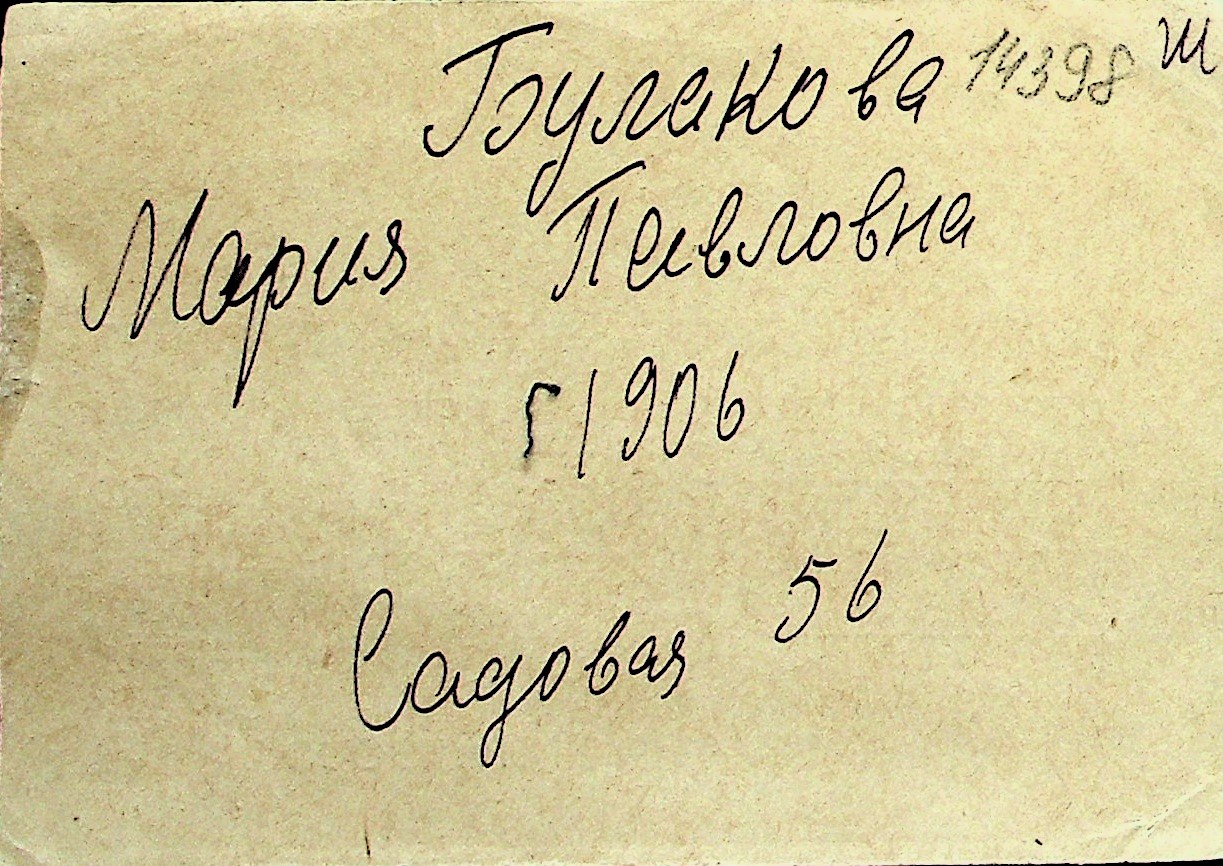 Булакова 14398 Ш
Мария Павловна
г 1906
Садовая 56